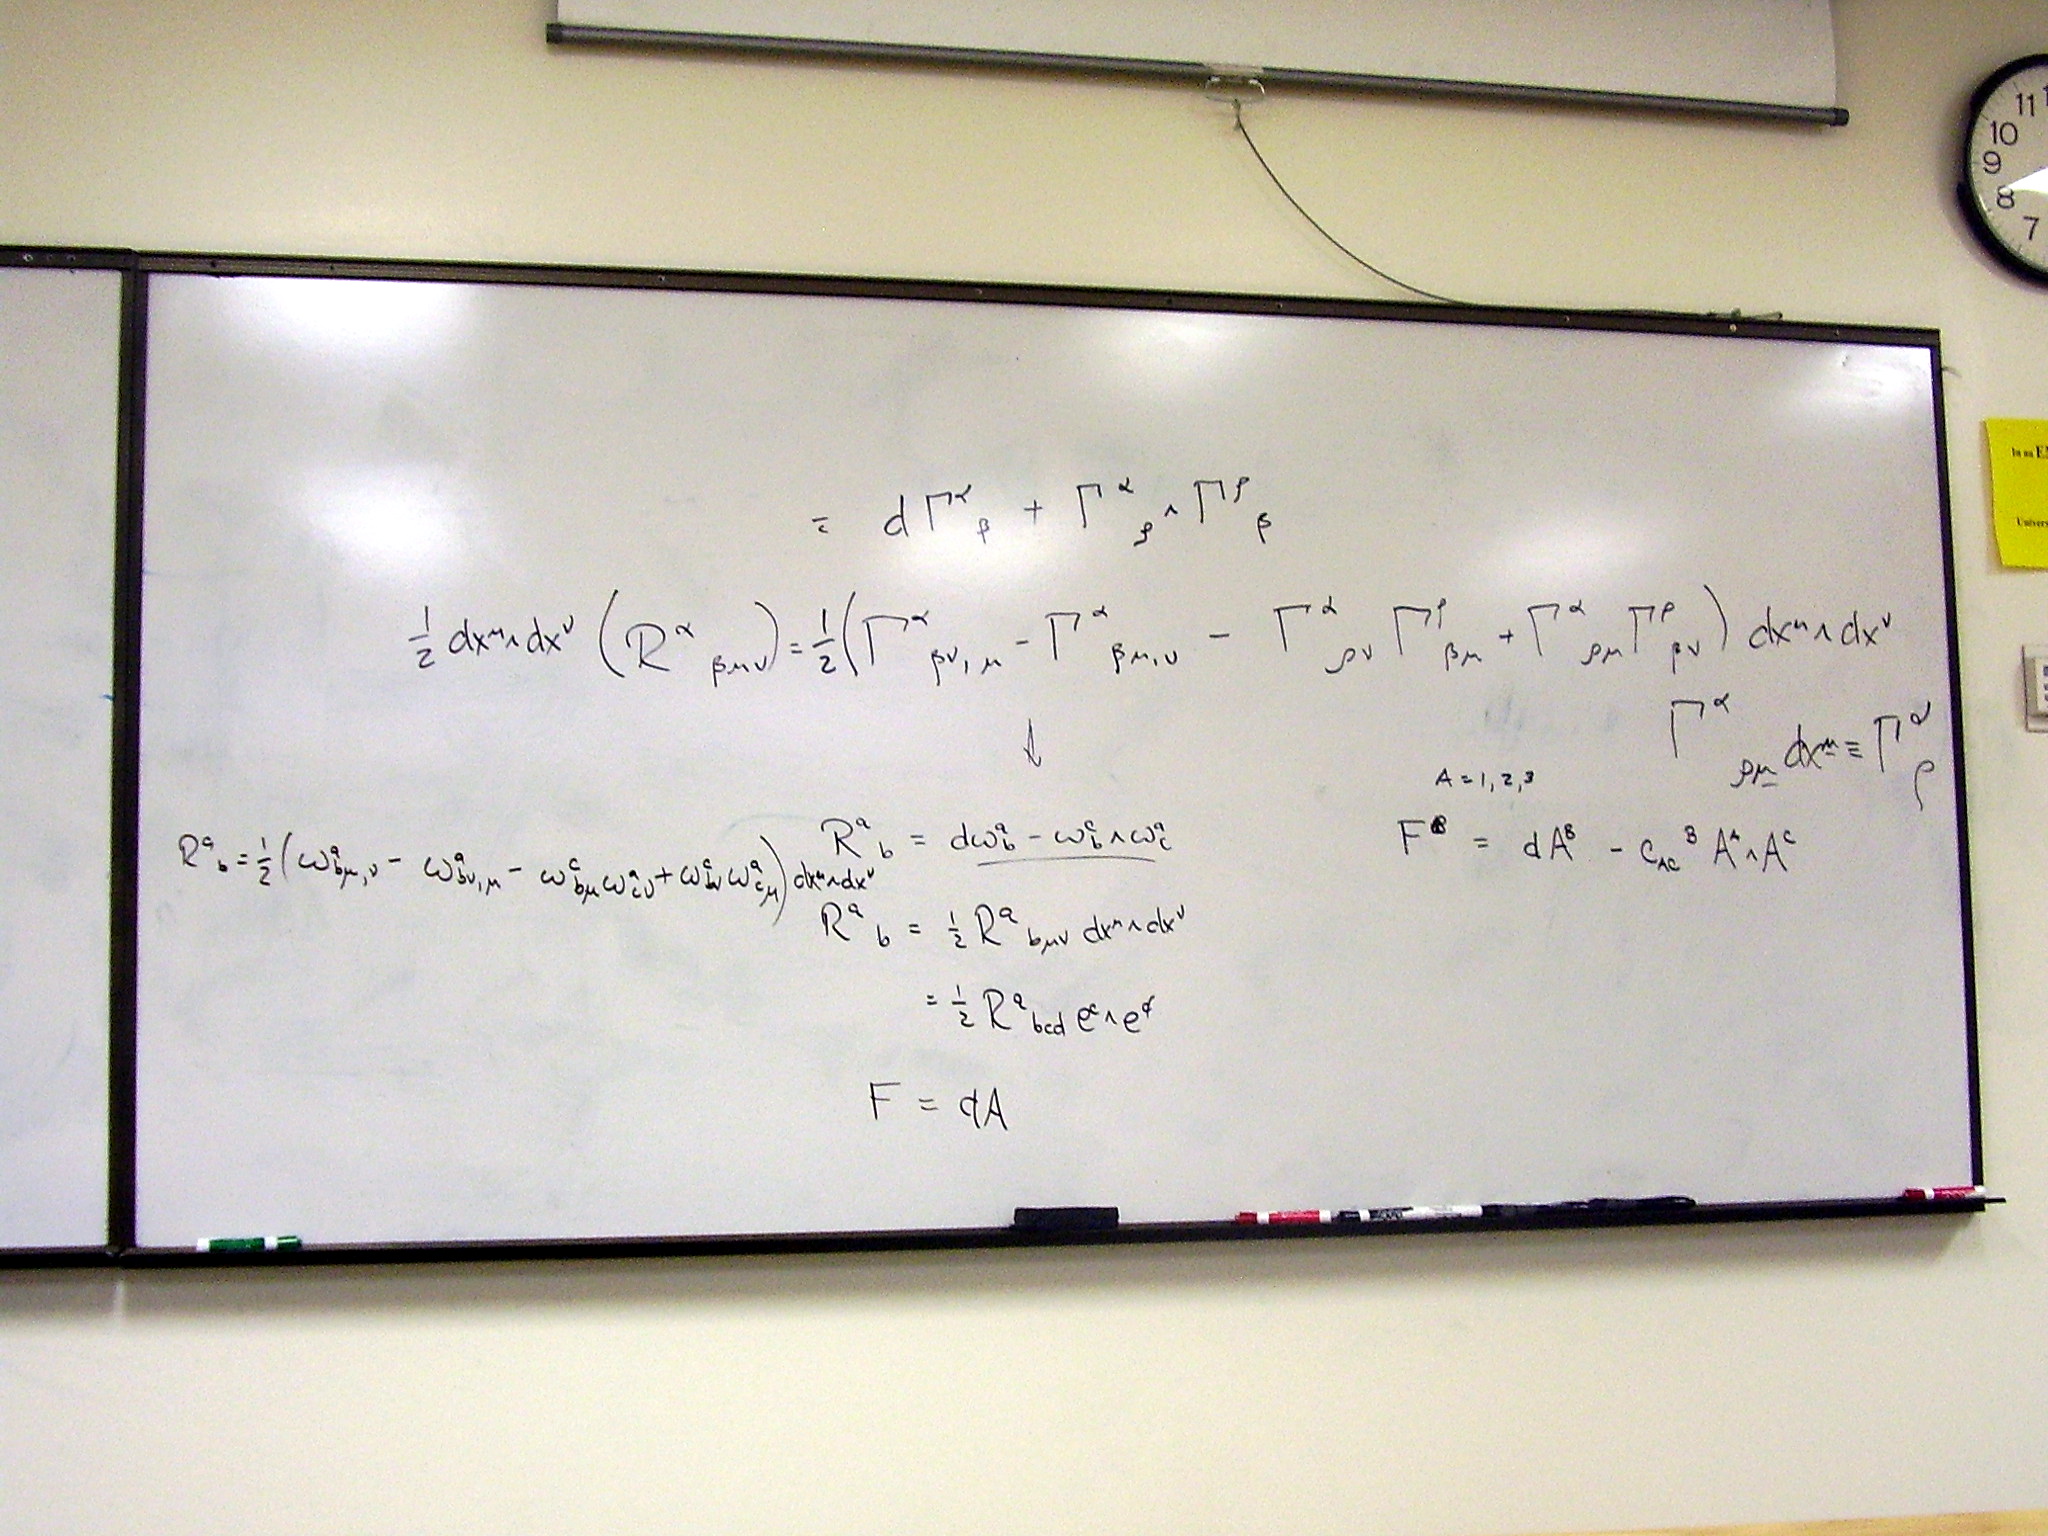 11 1
10
9
8
7
= dΓ^α_β + Γ^α_ρ ∧ Γ^ρ_β
½ dx^μ∧dx^ν (R^α_βμν) = ½(Γ^α_βν,μ - Γ^α_βμ,ν - Γ^α_ρν Γ^ρ_βμ + Γ^α_ρμ Γ^ρ_βν) dx^μ∧dx^ν
↓
Γ^α_ρμ dx^μ ≡ Γ^α_ρ
A = 1, 2, 3
R^a_b = ½(ω^a_bμ,ν - ω^a_bν,μ - ω^c_bμ ω^a_cν + ω^c_bν ω^a_cμ) dx^μ∧dx^ν
R^a_b = dω^a_b - ω^c_b∧ω^a_c
F^B = dA^B - c_AC^B A^A∧A^C
R^a_b = ½ R^a_bμν dx^μ∧dx^ν
= ½ R^a_bcd e^c∧e^d
F = dA
In an
Univers